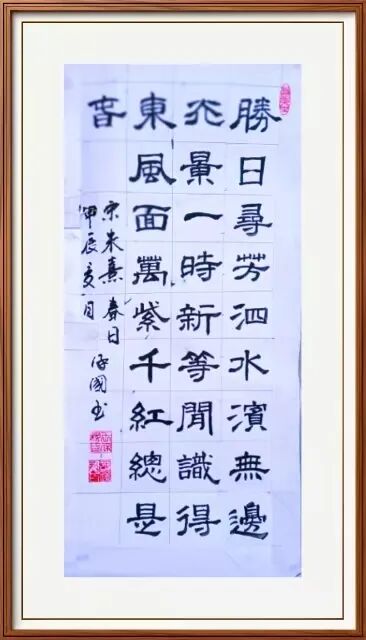 勝日尋芳泗水濱無邊
光景一時新等閒識得
東風面萬紫千紅總是
春
宋朱熹 春日 國书
甲辰亥月